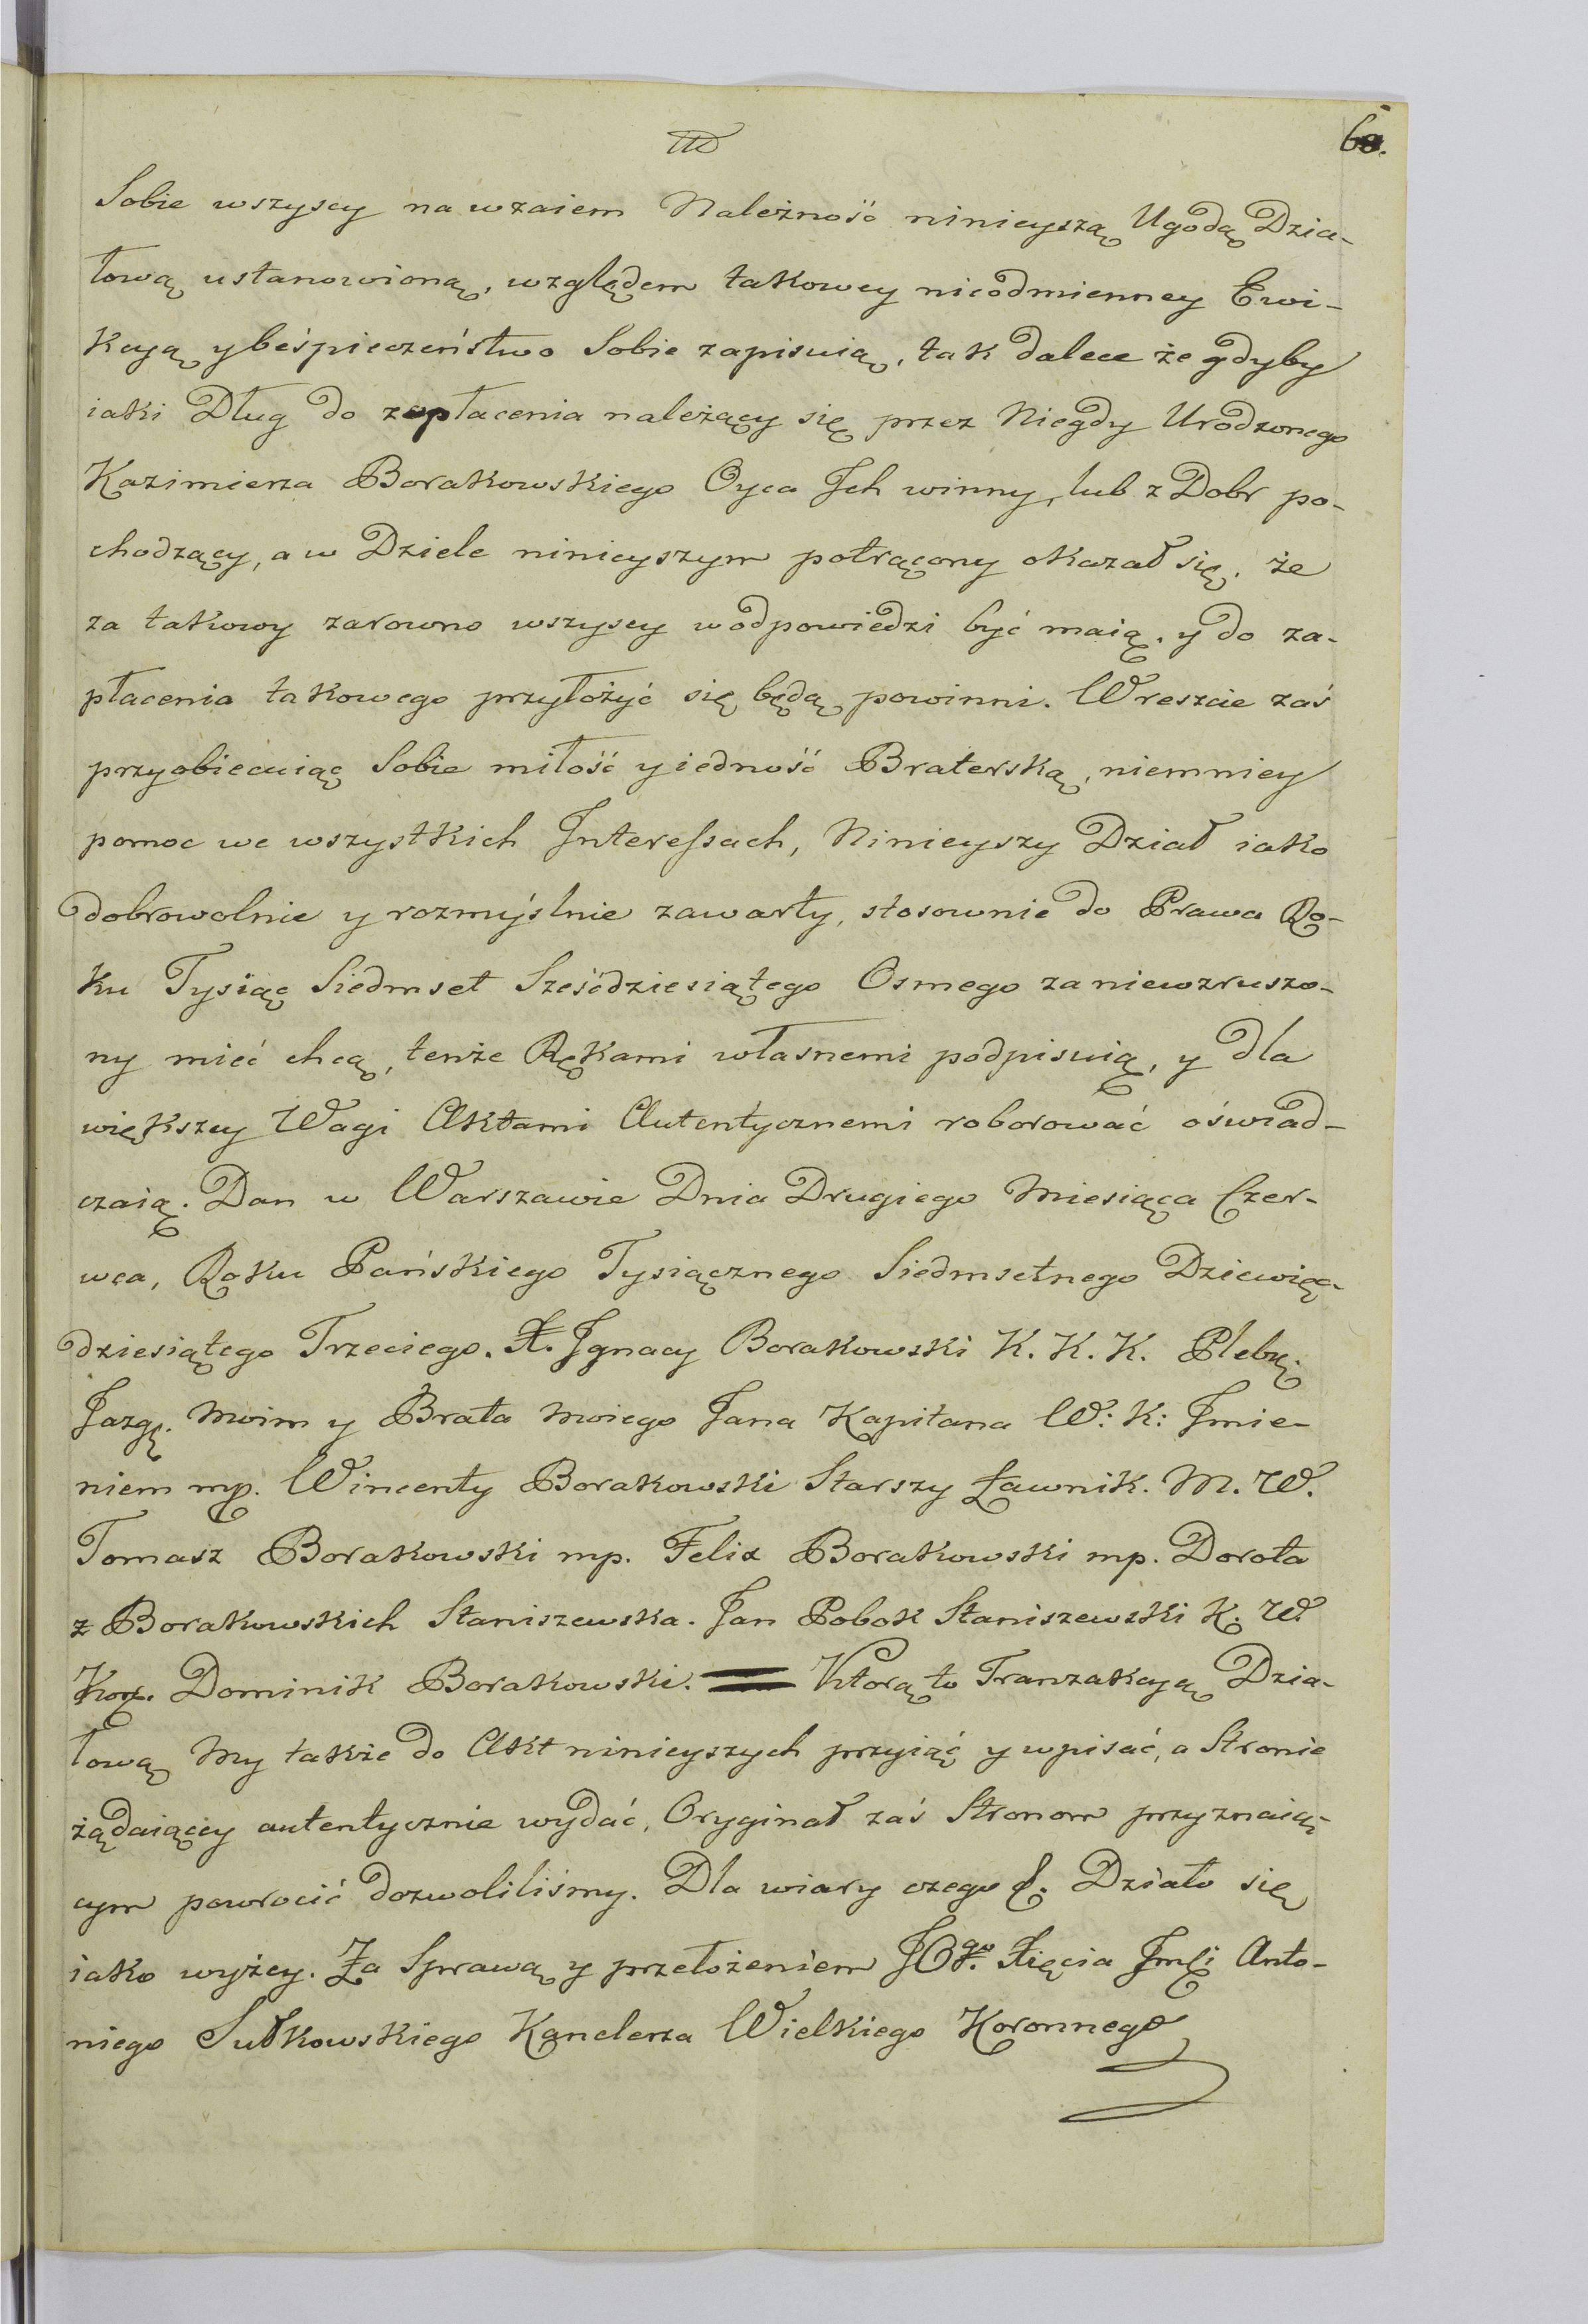 Sobie wszyscy nawzaiem Należność ninieyszą Ugodą Dzia-
łową ustanowioną, względem takowey nieodmienney Ewi-
kcyą y beśpieczeństwo Sobie zapisuią, tak dalece że gdyby
iaki Dług do zapłacenia należący się przez Niegdy Urodzonego
Kazimierza Borakowskiego Oyca Jch winny, lub z Dobr po-
chodzący, a w Dziele ninieyszym potrącony okazał się, że
za takowy zarowno wszyscy w odpowiedzi być maią, y do za-
płacenia takowego przyłożyć się będą powinni. Wreszcie zaś
przyobiecuiąc Sobie miłość y iedność Braterską, niemniey
pomoc we wszystkich Jnteressach, Ninieyszy Dział iako
dobrowolnie y rozmyślnie zawarty, stosownie do Prawa Ro-
ku Tysiąc Siedmset Sześćdziesiątego Osmego za niewzruszo-
ny mieć chcą, tenże Rękami własnemi podpisuią, y dla
większey Wagi Aktami Autentycznemi roborować oświad-
czaią. Dan w Warszawie Dnia Drugiego Miesiąca Czer-
wca, Roku Pańskiego Tysiącznego Siedmsetnego Dziewięć-
dziesiątego Trzeciego. X. Jgnacy Borakowski K. K. K. Plebą.
Jazgę. Moim y Brata Moiego Jana Kapitana W: K: Jmie-
niem mp. Wincenty Borakowski Starszy Ławnik. M. W.
Tomasz Borakowski mp. Felix Borakowski mp. Dorota
z Borakowskich Staniszewska. Jan Pobok Staniszewski K. W.
Kor. Dominik Borakowski. = Ktorą to Tranzakcyą Dzia-
łową My także do Akt ninieyszych przyiąć y wpisać, a Stronie
żądaiącey autentycznie wydać, Oryginał zaś Stronom przyznaią-
cym powrocić dozwoliliśmy. Dla wiary czego &. Działo się
iako wyżey. Za Sprawą y przełożeniem JO&go. Xięcia Jmci Anto-
niego Sułkowskiego Kanclerza Wielkiego Koronnego